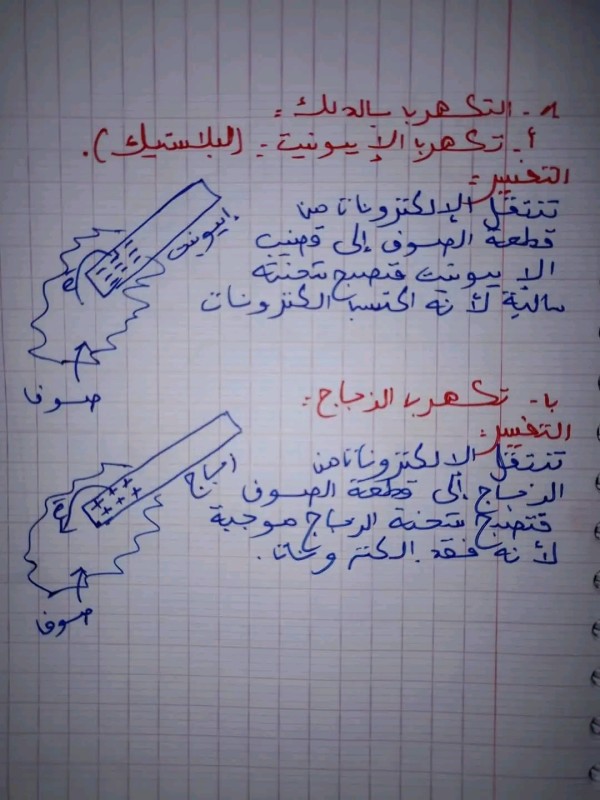 1- التكهرب بالدلك :
أ- تكهرب الإيبونيت - (البلاستيك).
التفسير:
تنتقل الإلكترونات من
قطعة الصوف إلى قضيب
الايبونيت فتصبح شحنته
سالبة لأنه اكتسب الكترونات
إيبونيت
e⁻
صوف
ب- تكهرب الزجاج :
التفسير:
تنتقل الالكترونات من
الزجاج إلى قطعة الصوف
فتصبح شحنة الزجاج موجبة
لأنه فقد الكترونات.
زجاج
e⁻
صوف